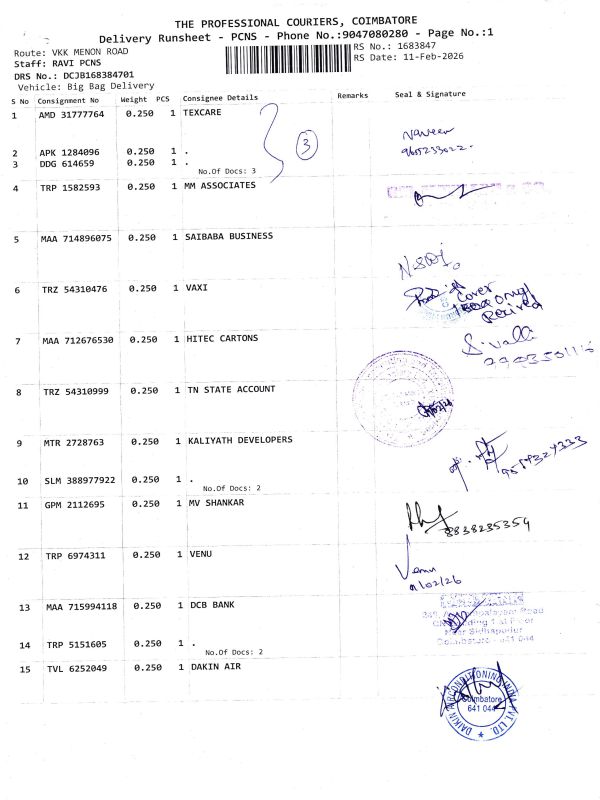 THE PROFESSIONAL COURIERS, COIMBATORE
Delivery Runsheet - PCNS - Phone No.:9047080280 - Page No.:1
Route: VKK MENON ROAD
RS No.: 1683847
Staff: RAVI PCNS
RS Date: 11-Feb-2026
DRS No.: DCJB168384701
Vehicle: Big Bag Delivery
S No Consignment No Weight PCS Consignee Details Remarks Seal & Signature
1 AMD 31777764 0.250 1 TEXCARE
Naveen
3
2 APK 1284096 0.250 1 .
3 DDG 614659 0.250 1 .
No.Of Docs: 3
4 TRP 1582593 0.250 1 MM ASSOCIATES
5 MAA 714896075 0.250 1 SAIBABA BUSINESS
6 TRZ 54310476 0.250 1 VAXI
Cover
7 MAA 712676530 0.250 1 HITEC CARTONS
8 TRZ 54310999 0.250 1 TN STATE ACCOUNT
9 MTR 2728763 0.250 1 KALIYATH DEVELOPERS
10 SLM 388977922 0.250 1 .
No.Of Docs: 2
11 GPM 2112695 0.250 1 MV SHANKAR
8838235354
12 TRP 6974311 0.250 1 VENU
Venu
11/02/26
13 MAA 715994118 0.250 1 DCB BANK
14 TRP 5151605 0.250 1 .
No.Of Docs: 2
Coimbatore - 641 044
15 TVL 6252049 0.250 1 DAKIN AIR
DAIKIN AIRCONDITIONING INDIA PVT. LTD.
Coimbatore
641 044